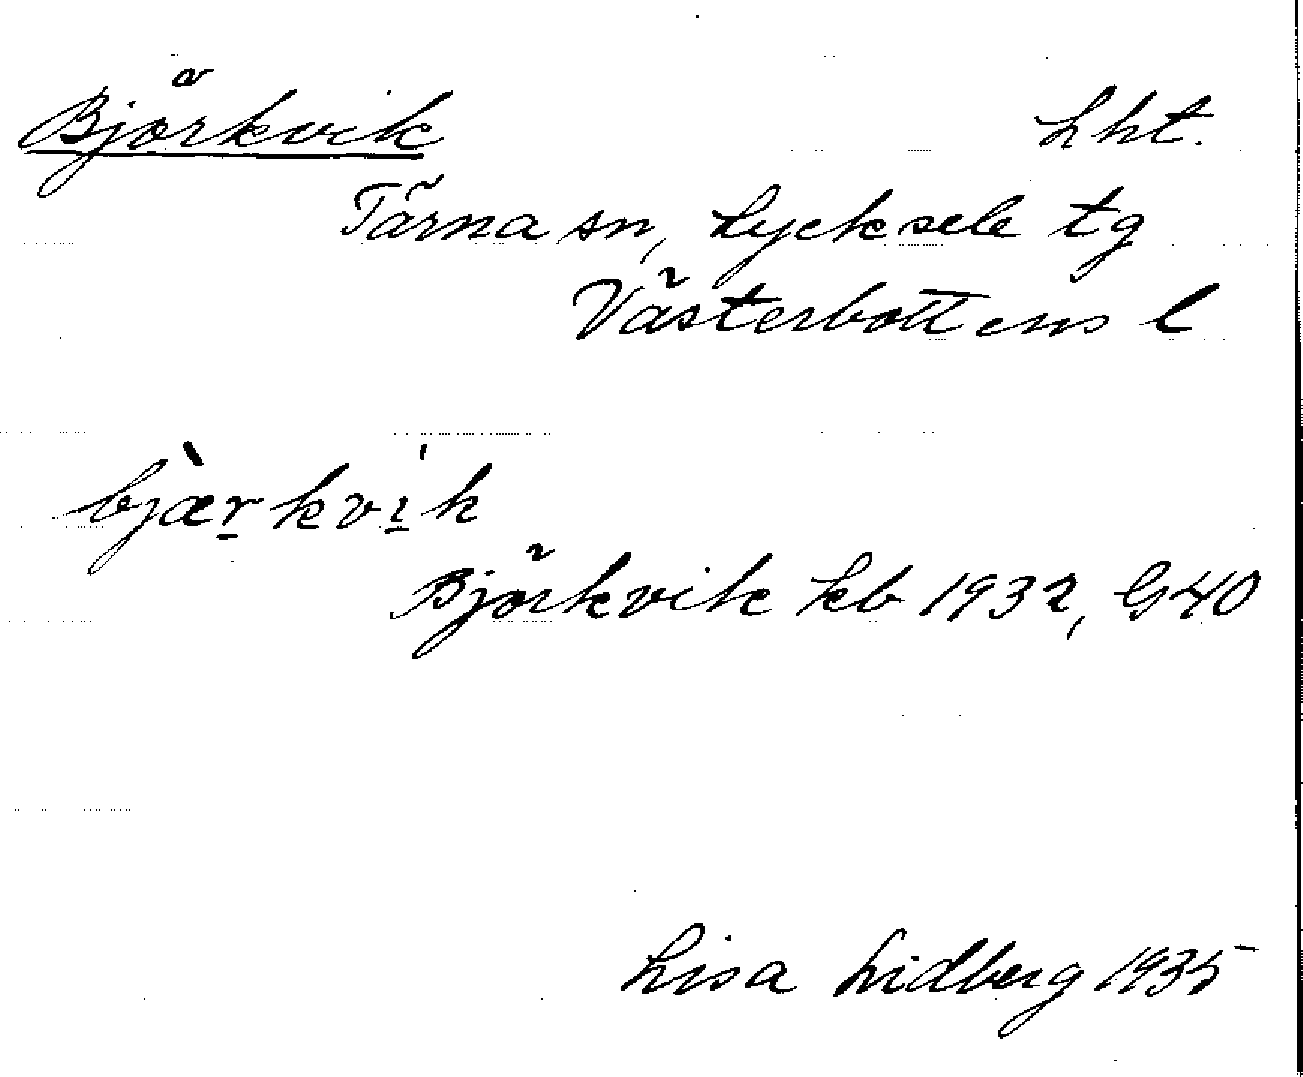 Björkvik lht.
Tärna sn, Lycksele tg
Västerbottens l
bjæ̀r̲kvi̲̍k
Björkvik kb 1932, G40
Lisa Lidberg 1935